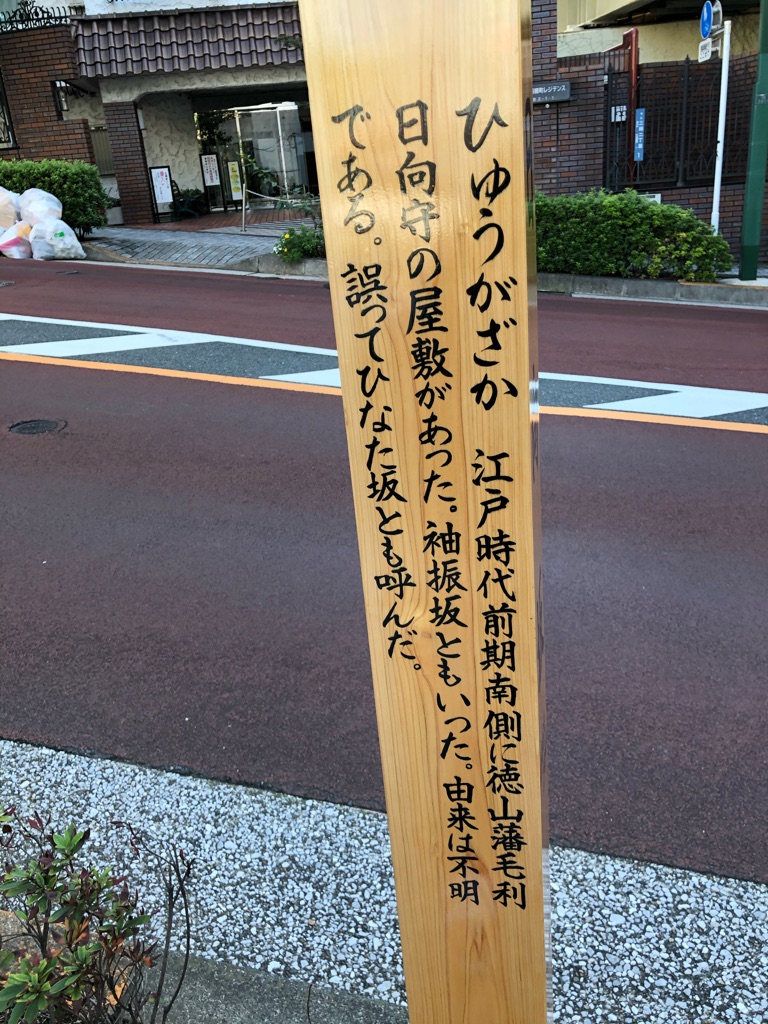 ひゅうがざか 江戸時代前期南側に徳山藩毛利
日向守の屋敷があった。袖振坂ともいった。由来は不明
である。誤ってひなた坂とも呼んだ。